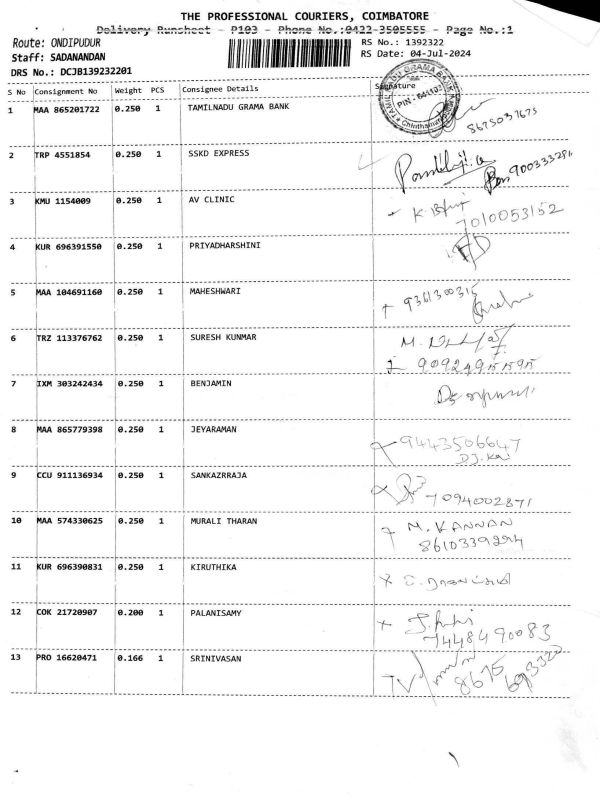 THE PROFESSIONAL COURIERS, COIMBATORE
Delivery Runsheet - P103 - Phone No.:0422-3505555 - Page No.:1
Route: ONDIPUDUR
RS No.: 1392322
Staff: SADANANDAN
RS Date: 04-Jul-2024
DRS No.: DCJB139232201
S No Consignment No Weight PCS Consignee Details Signature
1 MAA 865201722 0.250 1 TAMILNADU GRAMA BANK
2 TRP 4551854 0.250 1 SSKD EXPRESS
3 KMU 1154009 0.250 1 AV CLINIC
7010053152
4 KUR 696391550 0.250 1 PRIYADHARSHINI
5 MAA 104691160 0.250 1 MAHESHWARI
9361300315
6 TRZ 113376762 0.250 1 SURESH KUNMAR
7 IXM 303242434 0.250 1 BENJAMIN
8 MAA 865779398 0.250 1 JEYARAMAN
9443506647
9 CCU 911136934 0.250 1 SANKAZRRAJA
7094002871
10 MAA 574330625 0.250 1 MURALI THARAN
M. KANNAN
8610339294
11 KUR 696390831 0.250 1 KIRUTHIKA
12 COK 21720907 0.200 1 PALANISAMY
7448490083
13 PRO 16620471 0.166 1 SRINIVASAN